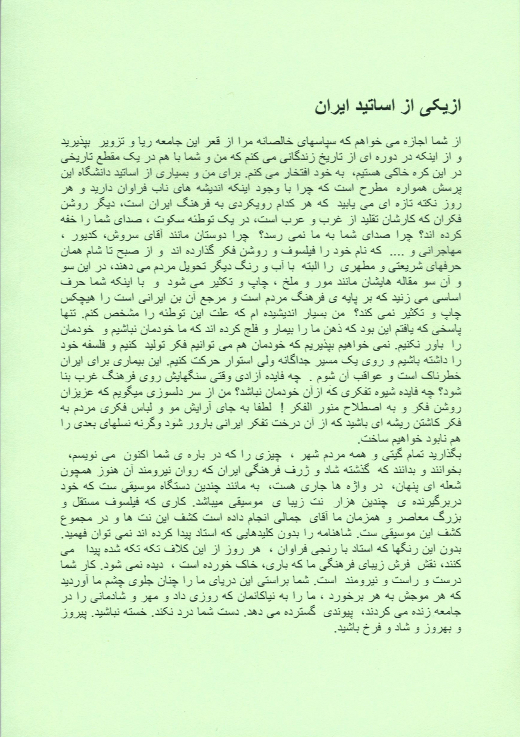 ازیکی از اساتید ایران
از شما اجازه می خواهم که سپاسهای خالصانه مرا از قعر این جامعه ریا و تزویر بپذیرید
و از اینکه در دوره ای از تاریخ زندگانی می کنم که من و شما با هم در یک مقطع تاریخی
در این کره خاکی هستیم، به خود افتخار می کنم. برای من و بسیاری از اساتید دانشگاه این
پرسش همواره مطرح است که چرا با وجود اینکه اندیشه های ناب فراوان دارید و هر
روز نکته تازه ای می یابید که هر کدام رویکردی به فرهنگ ایران است، دیگر روشن
فکران که کارشان تقلید از غرب و عرب است، در یک توطئه سکوت ، صدای شما را خفه
کرده اند؟ چرا صدای شما به ما نمی رسد؟ چرا دوستان مانند آقای سروش، کدیور ،
مهاجرانی و .... که نام خود را فیلسوف و روشن فکر گذارده اند و از صبح تا شام همان
حرفهای شریعتی و مطهری را البته با آب و رنگ دیگر تحویل مردم می دهند، در این سو
و آن سو مقاله هایشان مانند مور و ملخ ، چاپ و تکثیر می شود و با اینکه شما حرف
اساسی می زنید که بر پایه ی فرهنگ مردم است و مرجع آن بن ایرانی است را هیچکس
چاپ و تکثیر نمی کند؟ من بسیار اندیشیده ام که علت این توطئه را مشخص کنم. تنها
پاسخی که یافتم این بود که ذهن ما را بیمار و فلج کرده اند که ما خودمان نباشیم و خودمان
را باور نکنیم. نمی خواهیم بپذیریم که خودمان هم می توانیم فکر تولید کنیم و فلسفه خود
را داشته باشیم و روی یک مسیر جداگانه ولی استوار حرکت کنیم. این بیماری برای ایران
خطرناک است و عواقب ان شوم . چه فایده ازادی وقتی سنگهایش روی فرهنگ غرب بنا
شود؟ چه فایده شیوه تفکری که ازآن خودمان نباشد؟ من از سر دلسوزی میگویم که عزیزان
روشن فکر و به اصطلاح منور الفکر ! لطفا به جای آرایش مو و لباس فکری مردم به
فکر کاشتن ریشه ای باشید که از آن درخت تفکر ایرانی بارور شود وگرنه نسلهای بعدی را
هم نابود خواهیم ساخت.
بگذارید تمام گیتی و همه مردم شهر ، چیزی را که در باره ی شما اکنون می نویسم،
بخوانند و بدانند که گذشته شاد و ژرف فرهنگی ایران که روان نیرومند آن هنوز همچون
شعله ای پنهان، در واژه ها جاری هست، به مانند چندین دستگاه موسیقی ست که خود
دربرگیرنده ی چندین هزار نت زیبا ی موسیقی میباشد. کاری که فیلسوف مستقل و
بزرگ معاصر و همزمان ما آقای جمالی انجام داده است کشف این نت ها و در مجموع
کشف این موسیقی ست. شاهنامه را بدون کلیدهایی که استاد پیدا کرده اند نمی توان فهمید.
بدون این رنگها که استاد با رنجی فراوان ، هر روز از این کلاف تکه تکه شده پیدا می
کنند، نقش فرش زیبای فرهنگی ما که باری، خاک خورده است ، دیده نمی شود. کار شما
درست و راست و نیرومند است. شما براستی این دریای ما را چنان جلوی چشم ما آوردید
که هر موجش به هر برخورد ، ما را به نیاکانمان که روزی داد و مهر و شادمانی را در
جامعه زنده می کردند، پیوندی گسترده می دهد. دست شما درد نکند. خسته نباشید. پیروز
و بهروز و شاد و فرخ باشید.